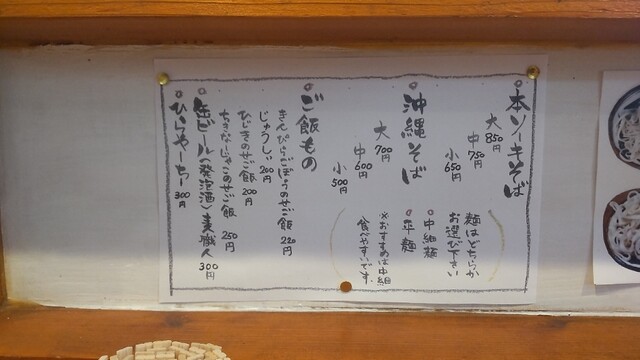 本ソーキそば
大 850円
中 750円
小 650円
麺はどちらか
お選び下さい
○中細麺
○平麺
※おすすめは中細
食べやすいです。
沖縄そば
大 700円
中 600円
小 500円
ご飯もの
きんぴらごぼうのせご飯 220円
じゅうしい 200円
ひじきのせご飯 200円
ちきなーじゃこのせご飯 250円
缶ビール(発泡酒)麦職人 300円
ひらやーちー 300円